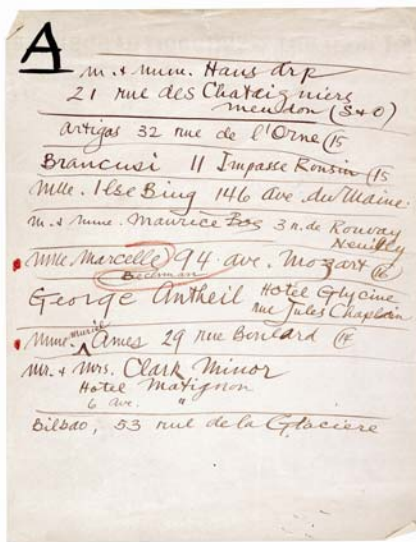 A
M. + Mme. Hans Arp
21 rue des Chataigniers
Meudon (S+O)
Artigas 32 rue de l'Orne (15
Brancusi 11 Impasse Ronsin (15
Mlle. Ilse Bing 146 Ave. du Maine.
M. + Mme. Maurice 3 r. de Rouvray
Neuilly
Mlle. Marcelle 94 ave. Mozart (16
Beckman
George Antheil Hotel Glycine
rue Jules Chaplain
Muriel
Mme. Ames 29 rue Boulard (14
Mr. + Mrs. Clark Minor
Hotel Matignon
6 Ave. "
Bilbao, 53 rue de la Glaciere